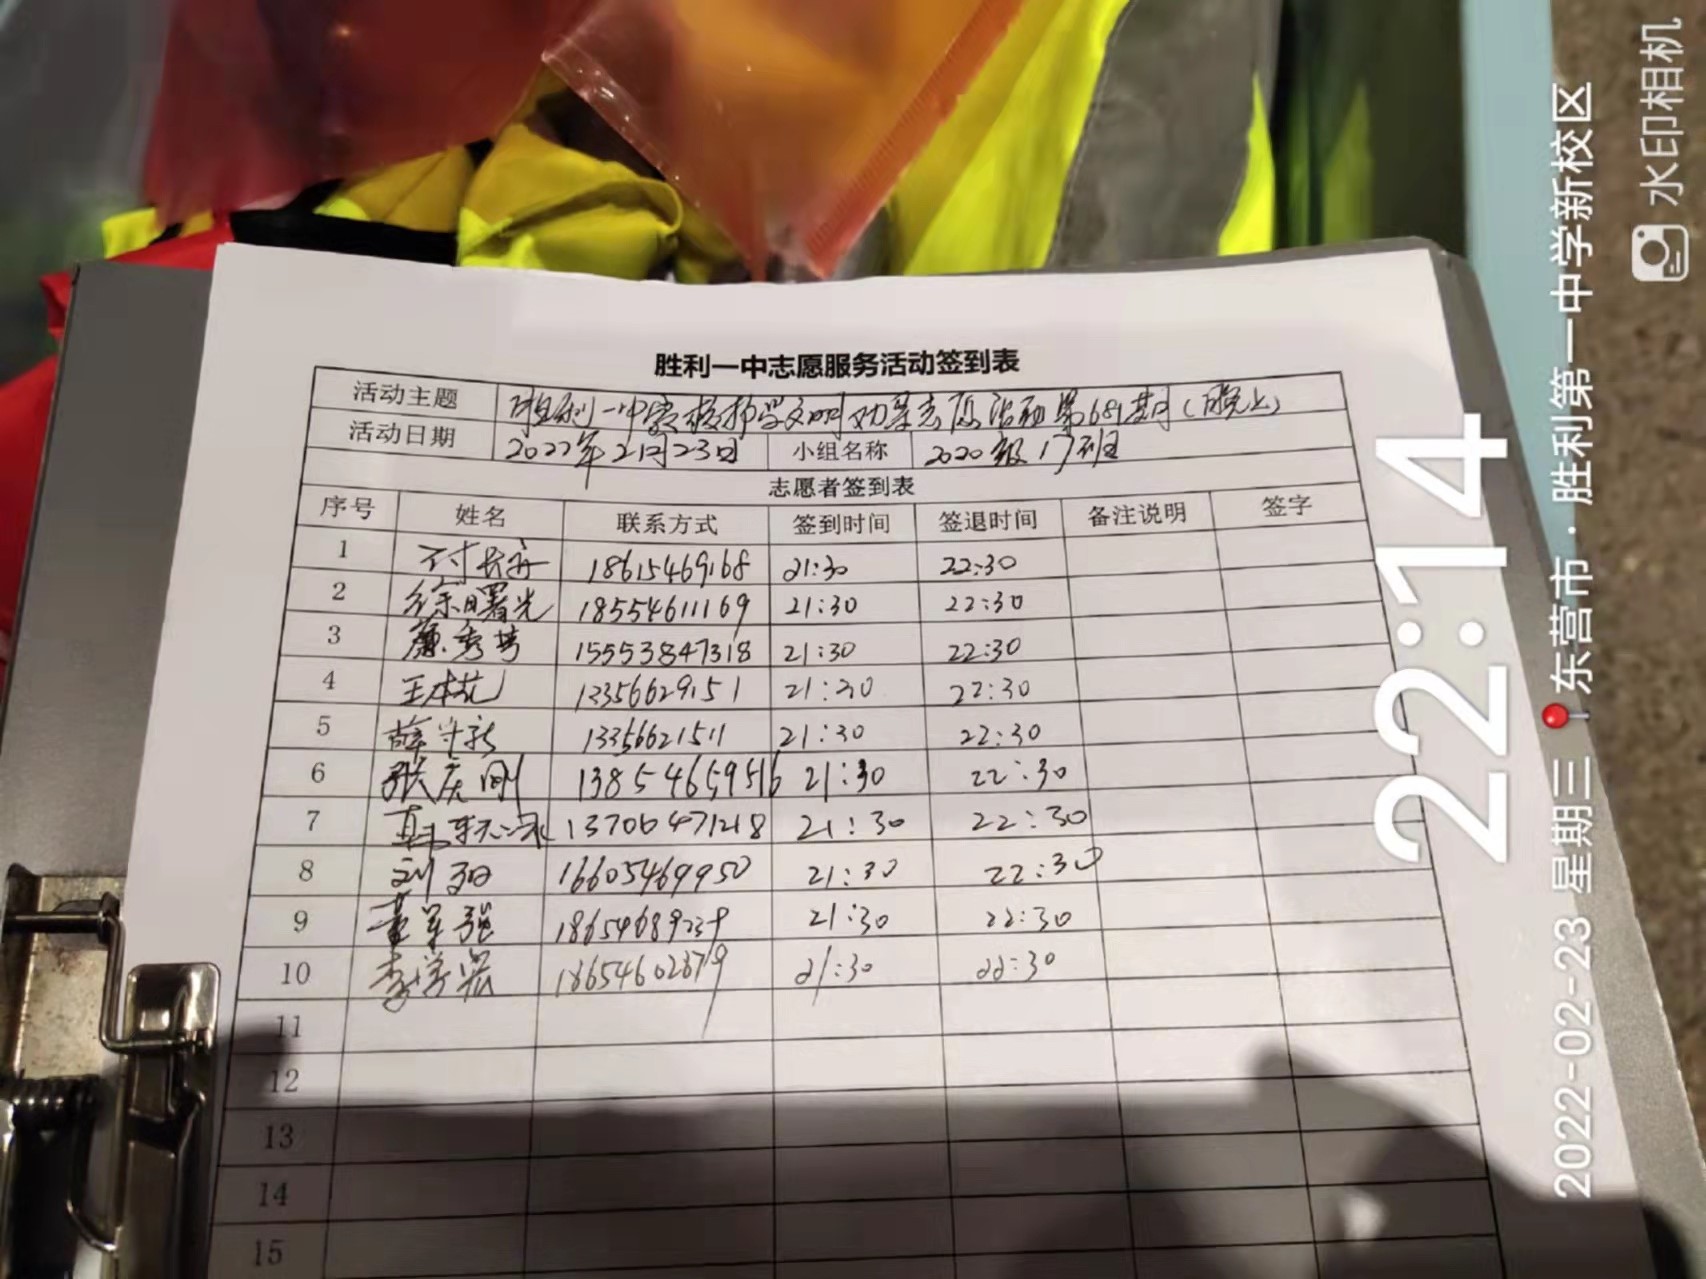 胜利一中志愿服务活动签到表
活动主题 胜利一中家校护学文明劝导志愿活动第689期(晚上)
活动日期 2022年2月23日 小组名称 2020级17班
志愿者签到表
序号 姓名 联系方式 签到时间 签退时间 备注说明 签字
1 18615469168 21:30 22:30
2 徐曙光 18554611169 21:30 22:30
3 15553847318 21:30 22:30
4 王本花 13356629151 21:30 22:30
5 薛守新 13356621511 21:30 22:30
6 张庆刚 13854659516 21:30 22:30
7 13706471218 21:30 22:30
8 16605469950 21:30 22:30
9 董军强 18654689239 21:30 22:30
10 李学宏 18654602879 21:30 22:30
11
12
13
14
15
22:14
2022-02-23 星期三 东营市·胜利第一中学新校区
水印相机